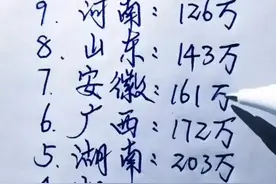 9. 河南：126万
8. 山东：143万
7. 安徽：161万
6. 广西：172万
5. 湖南：203万